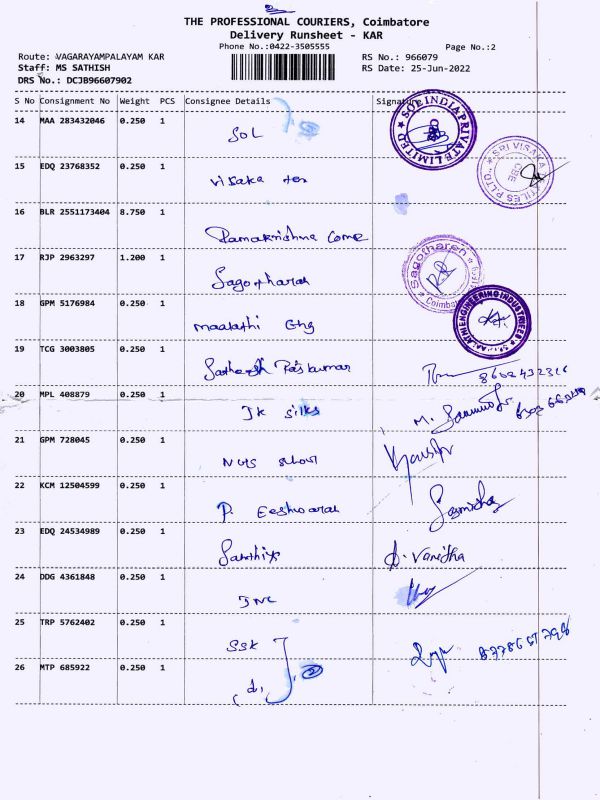 THE PROFESSIONAL COURIERS, Coimbatore
Delivery Runsheet - KAR
Phone No.:0422-3505555
Page No.:2
Route: VAGARAYAMPALAYAM KAR
RS No.: 966079
Staff: MS SATHISH
RS Date: 25-Jun-2022
DRS No.: DCJB96607902
S No Consignment No Weight PCS Consignee Details Signature
14 MAA 283432046 0.250 1
SOL
SOL INDIA PRIVATE LIMITED
15 EDQ 23768352 0.250 1
Visaka tex
SRI VISAKA
CBE
16 BLR 2551173404 8.750 1
Ramakrishna
17 RJP 2963297 1.200 1
Sagotharan
Sagotharan
Coimbat
18 GPM 5176984 0.250 1
Maalathi Eng
ENGINEERING INDUSTRIES
19 TCG 3003805 0.250 1
Satheesh Raskumar
8602432316
20 MPL 408879 0.250 1
JK silks
M.
21 GPM 728045 0.250 1
22 KCM 12504599 0.250 1
P. Eeshwaran
23 EDQ 24534989 0.250 1
Sakthiya
S. Vanitha
24 DDG 4361848 0.250 1
25 TRP 5762402 0.250 1
SSK
26 MTP 685922 0.250 1
(2)